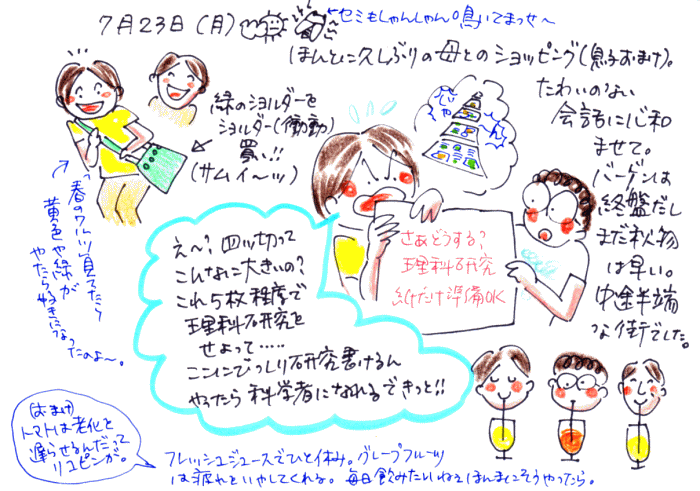 7月23日(月)
←セミもしゃんしゃん鳴いてまっせ～
ほんとに久しぶりの母とのショッピング(息子おまけ)。
たわいのない
会話に心和
ませて。
バーゲンは
終盤だし
まだ秋物
は早い。
中途半端
な街でした。
緑のショルダーを
ショルダー(衝動)
買い!!
(サムイ～ッ)
「春のワルツ」見てたら
黄色や緑が
やたら好きになったのよ～。
さあどうする?
理科研究
紙だけ準備OK
え～?四ッ切って
こんなに大きいの?
これ5枚程度で
理科研究を
せよって……
ここにびっしり研究書けるん
やったら科学者になれるできっと!!
(おまけ)
トマトは老化を
遅らせるんだって
リコピンが。
フレッシュジュースでひと休み。グレープフルーツ
は疲れをいやしてくれる。毎日飲みたいねぇほんまにそうやったら。